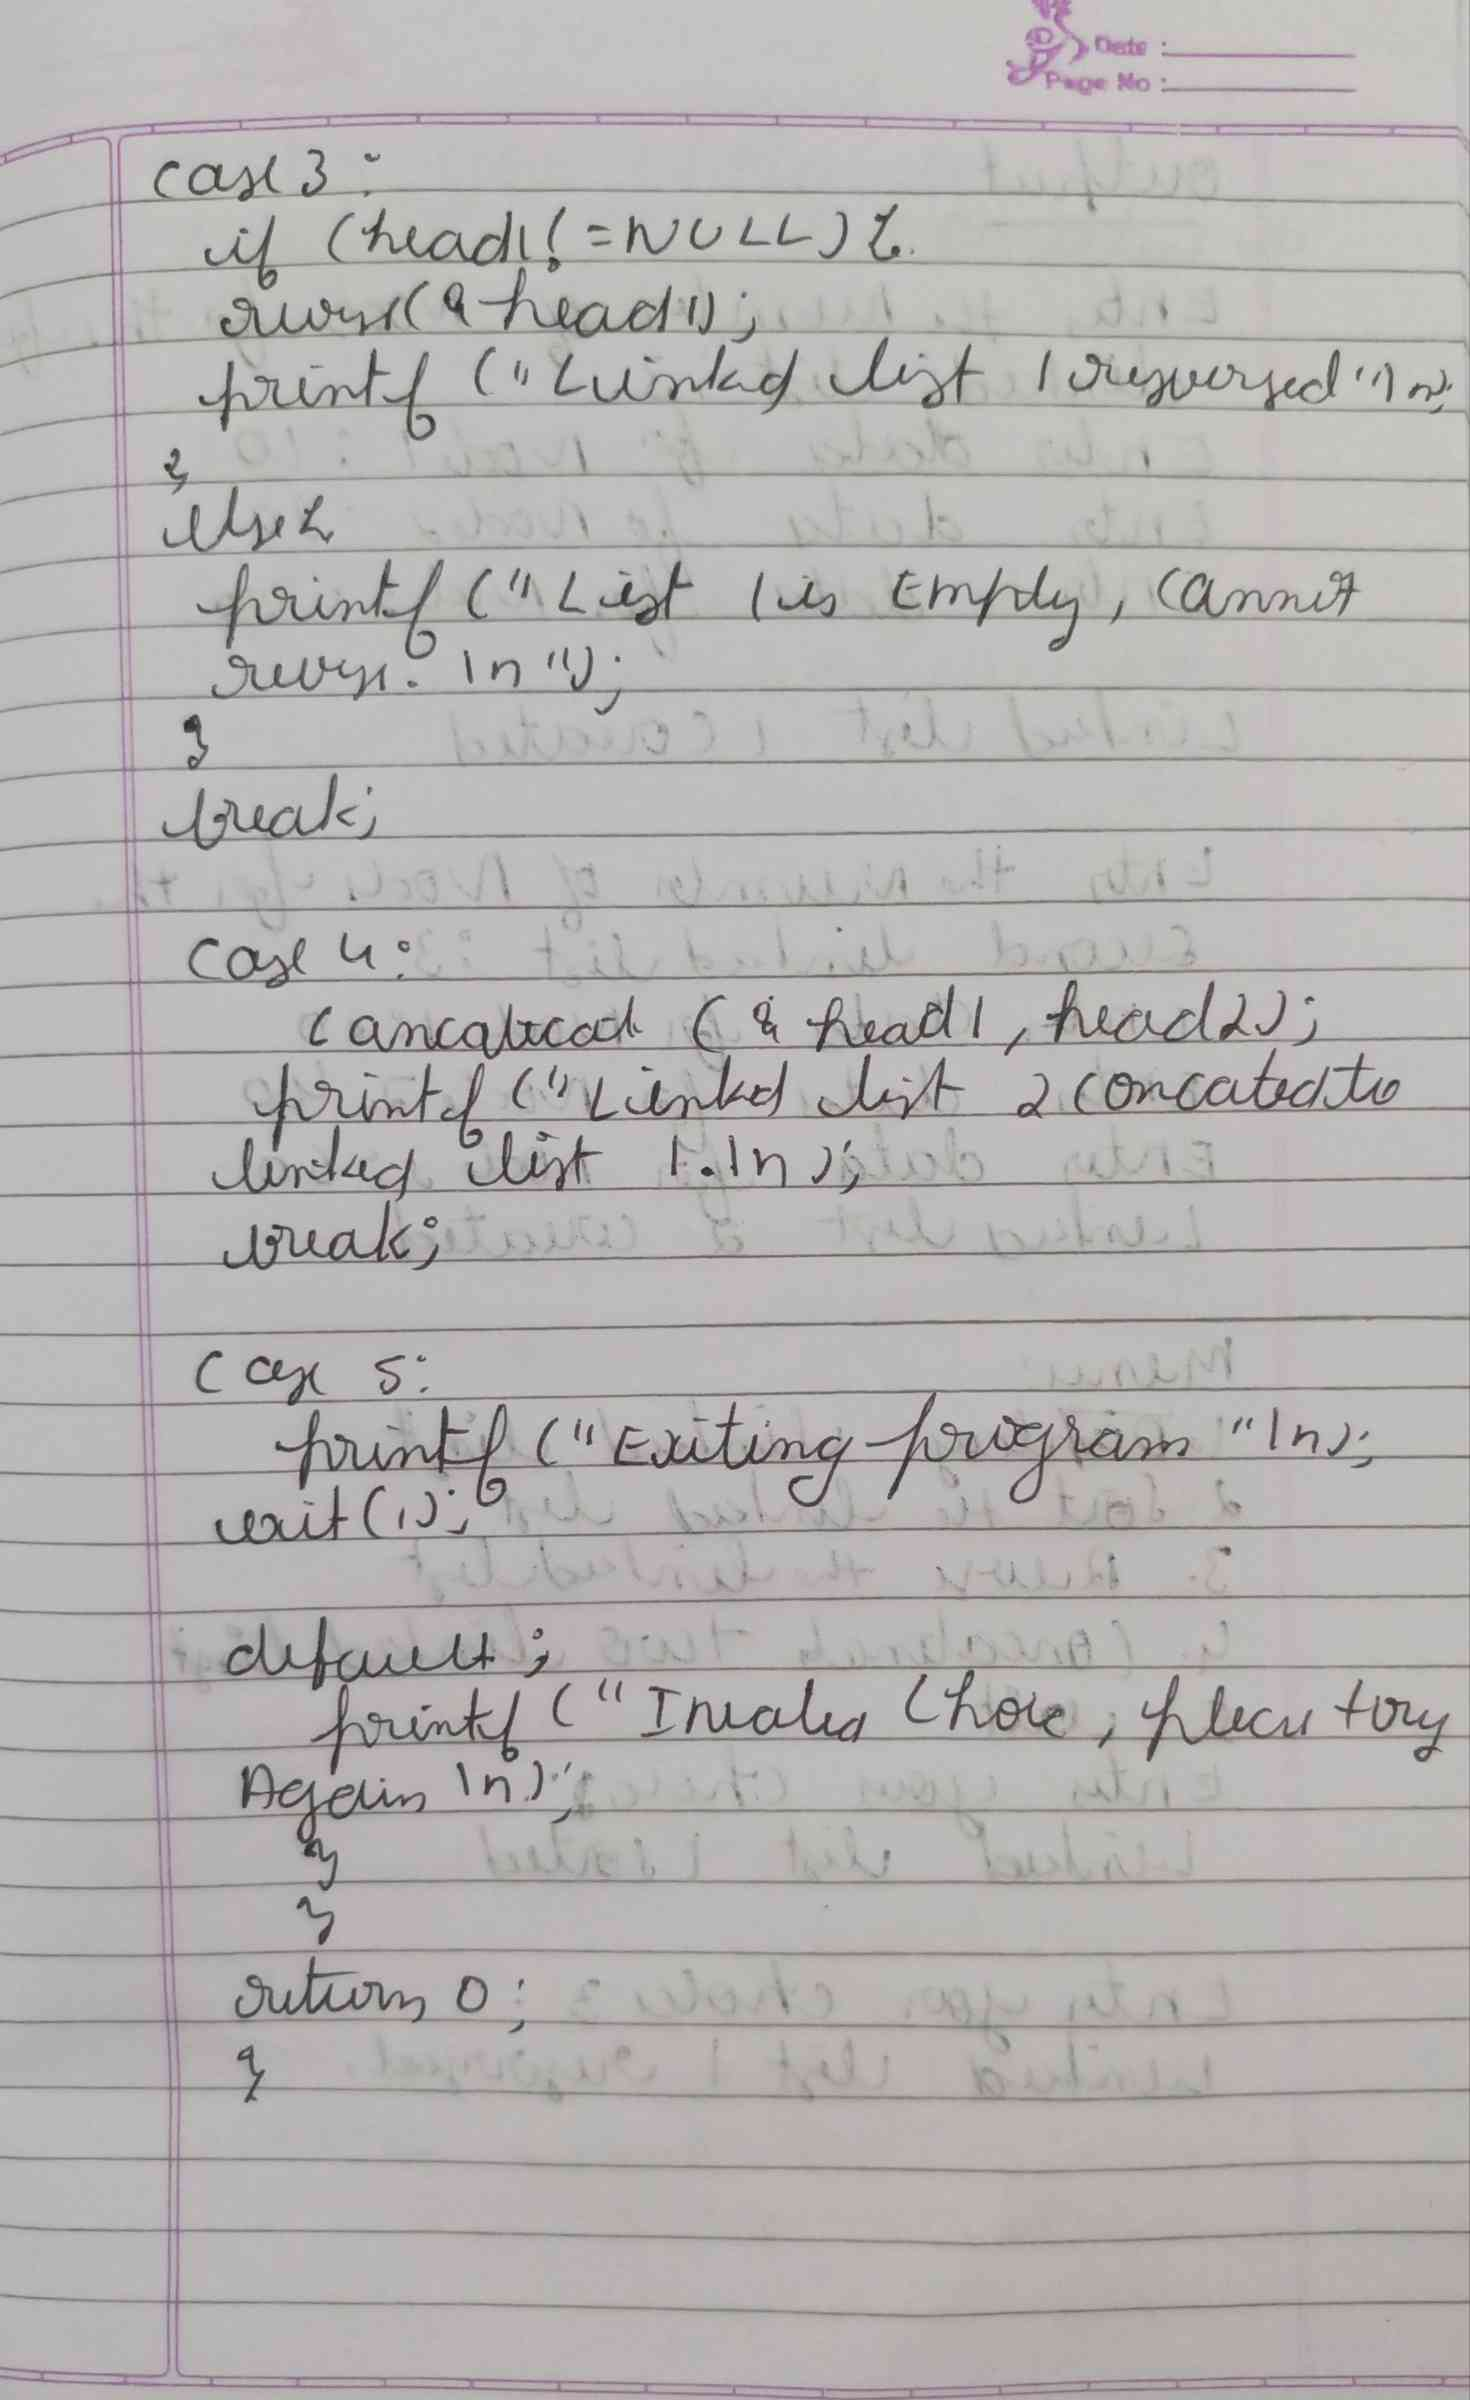 Date :
Page No :
case 3 :
if (head1! = NULL) {
revrse(&head1);
printf ("Linked list 1 resversed")\n;
}
else {
printf ("List 1 is Empty, cannot
revrse. \n");
}
break;
case 4 :
(&head1, head2);
printf ("Linked list 2 concated to
linked list 1.\n);
break;
case 5:
printf ("Exiting program "\n);
exit(1);
default ;
printf ("Invalid Choice, please try
Again \n);
}
}
return 0;
}